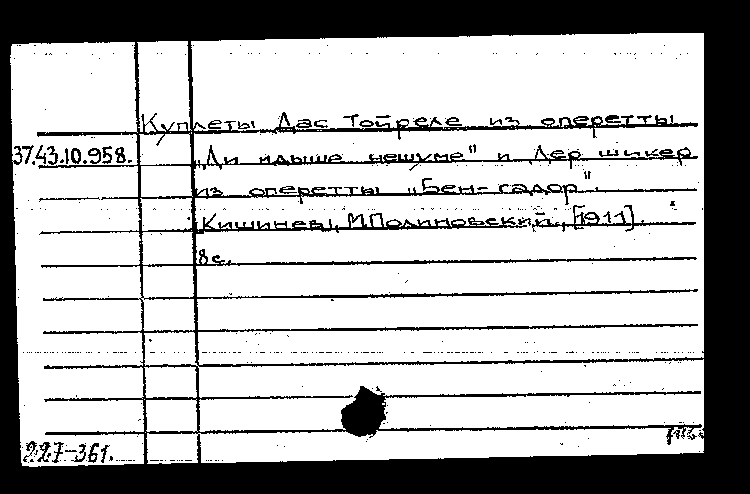 Куплеты Дас Тойреле из оперетты
37.43.10.958. „Ди идыше нешуме" и Дер шикер
из оперетты „Бен-гадор".
Кишинев, М.Полиновский, [1911].
8 с.
227-361.